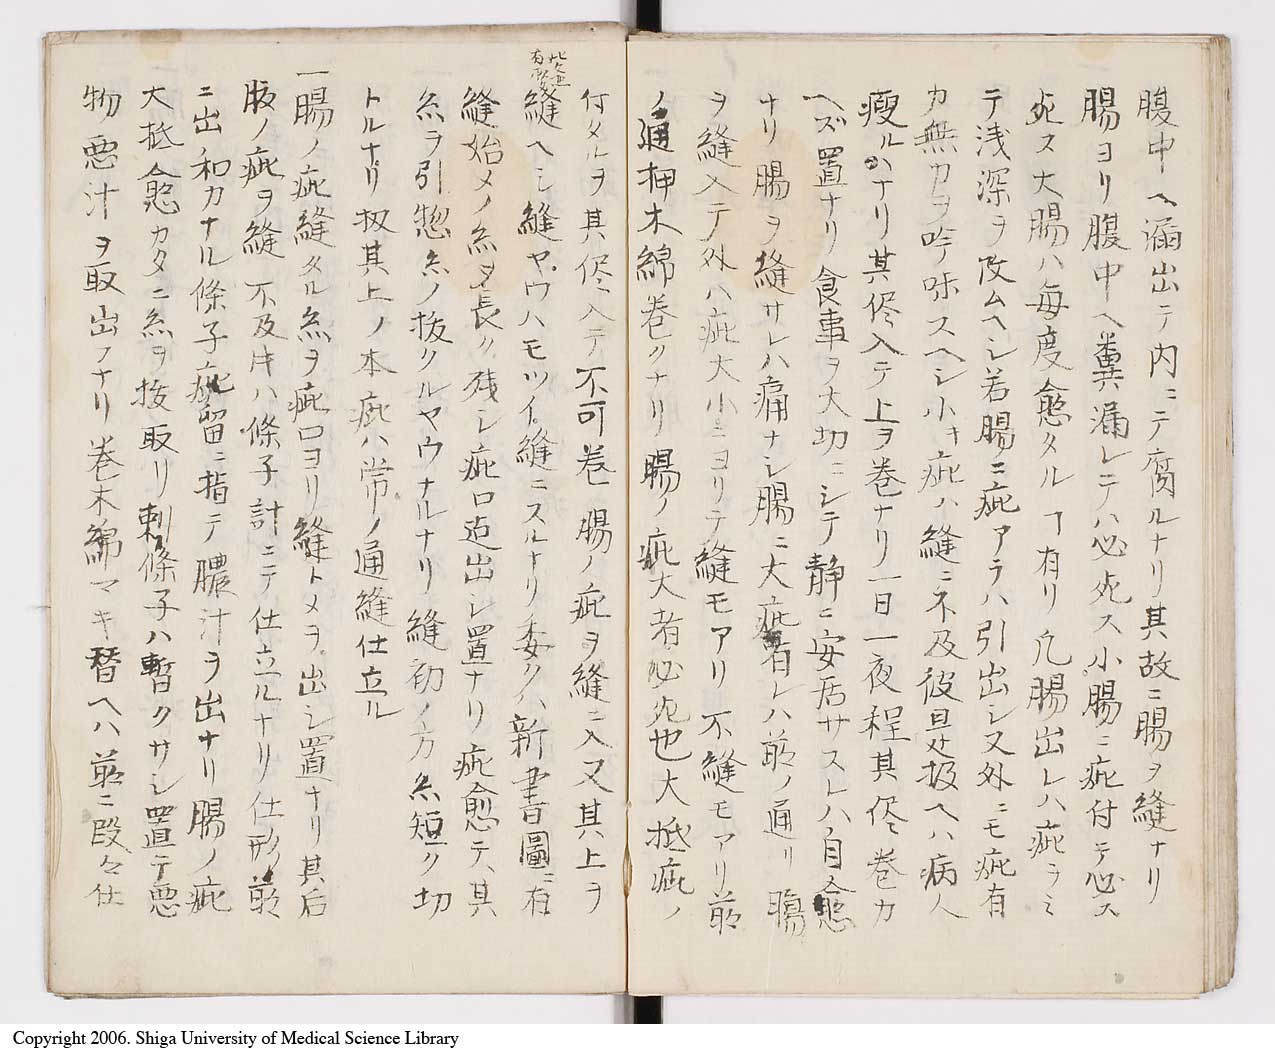 腹中ヘ漏出テ内ニテ腐ルナリ其故ニ腸ヲ縫ナリ
腸ヨリ腹中ヘ糞漏レテハ必死ス小腸ニ疵付テ必ス
死ス大腸ハ毎度愈タルヿ有リ凢腸出レハ疵ヲミ
テ浅深ヲ攻ムヘシ若腸ニ疵アラハ引出シ又外ニモ疵有
カ無カヲ吟味スヘシ小キ疵ハ縫ニ不及彼是扱ヘハ病人
瘦ルナリ其侭入テ上ヲ巻ナリ一日一夜程其侭巻カ
ヘズ置ナリ食事ヲ大切ニシテ静ニ安居サスレハ自愈
ナリ腸ヲ縫サレハ痛ナシ腸ニ大疵有レハ前ノ通リ腸
ヲ縫入テ外ハ疵大小ニヨリテ縫モアリ不縫モアリ前
ノ通押木綿巻クナリ腸ノ疵大者必死也大抵疵ノ
付タルヲ其侭入テ不可巻腸ノ疵ヲ縫ニ入又其上ヲ
縫ヘシ縫ヤウハモツイ縫ニスルナリ委クハ新書圖ニ有
縫始メノ糸ヲ長ク残シ疵口迄出シ置ナリ疵愈テ其
糸ヲ引惣糸ノ抜クルヤウナルナリ縫初ノ方糸短ク切
トルナリ扨其上ノ本疵ハ常ノ通縫仕立ル
一腸ノ疵縫タル糸ヲ疵口ヨリ縫トメヲ出シ置ナリ其后
腹ノ疵ヲ縫不及片ハ條子計ニテ仕立ルナリ仕形前
ニ出ノ和カナル條子疵留ニ指テ膿汁ヲ出ナリ腸ノ疵
大抵愈カタニ糸ヲ抜取リ刺條子ハ暫クサシ置テ悪
物悪汁ヲ取出ナリ巻木綿マキ替ヘハ前ニ段々仕